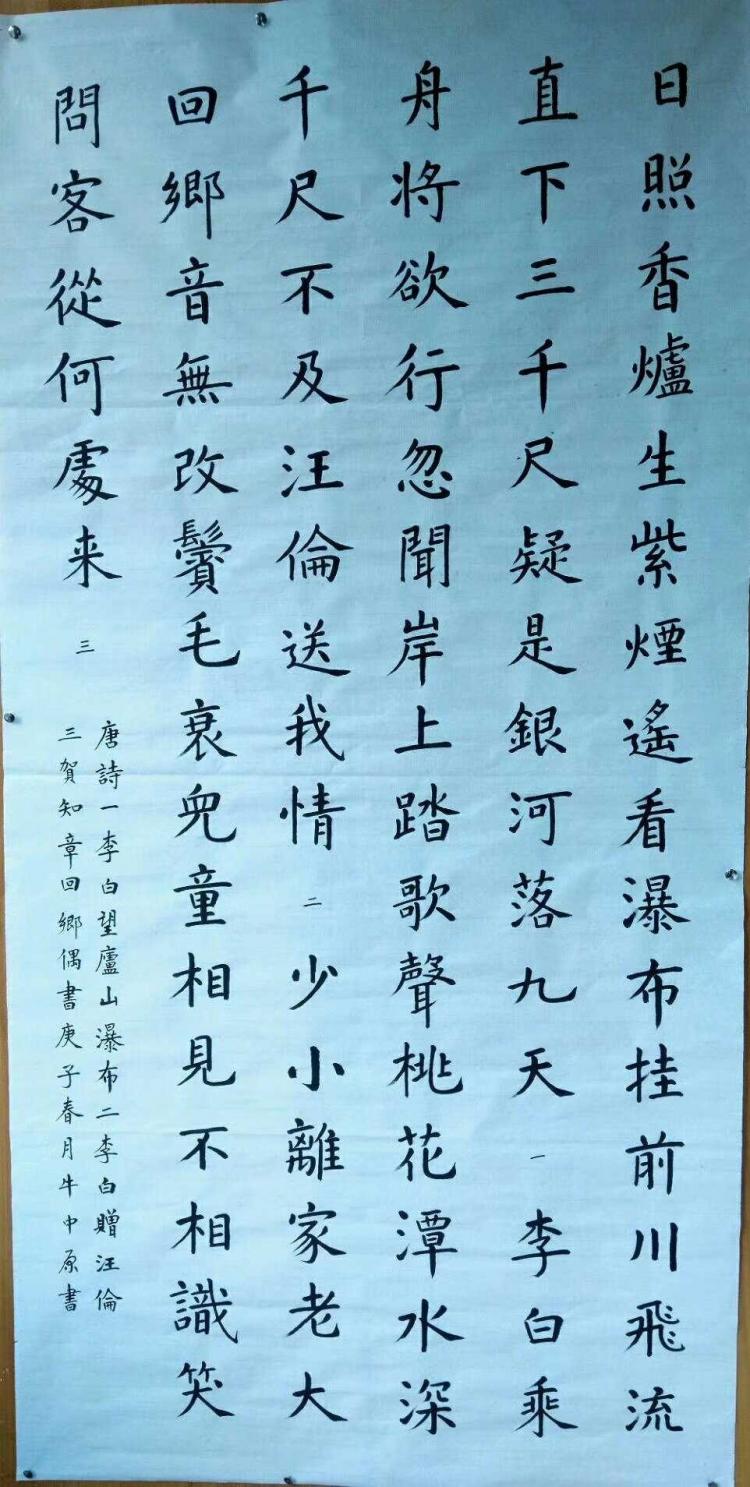 日照香爐生紫煙遙看瀑布挂前川飛流
直下三千尺疑是銀河落九天一李白乘
舟將欲行忽聞岸上踏歌聲桃花潭水深
千尺不及汪倫送我情二少小離家老大
回鄉音無改鬢毛衰兒童相見不相識笑
問客從何處来三
唐詩一李白望廬山瀑布二李白贈汪倫
三賀知章回鄉偶書庚子春月牛中原書